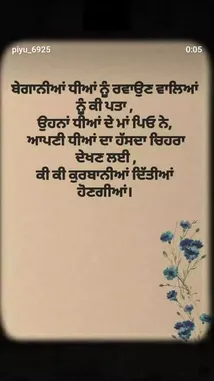 piyu_6925
0:05
ਬੇਗਾਨੀਆਂ ਧੀਆਂ ਨੂੰ ਰਵਾਉਣ ਵਾਲਿਆਂ
ਨੂੰ ਕੀ ਪਤਾ ,
ਉਹਨਾਂ ਧੀਆਂ ਦੇ ਮਾਂ ਪਿਓ ਨੇ,
ਆਪਣੀ ਧੀਆਂ ਦਾ ਹੱਸਦਾ ਚਿਹਰਾ
ਦੇਖਣ ਲਈ ,
ਕੀ ਕੀ ਕੁਰਬਾਨੀਆਂ ਦਿੱਤੀਆਂ
ਹੋਣਗੀਆਂ।